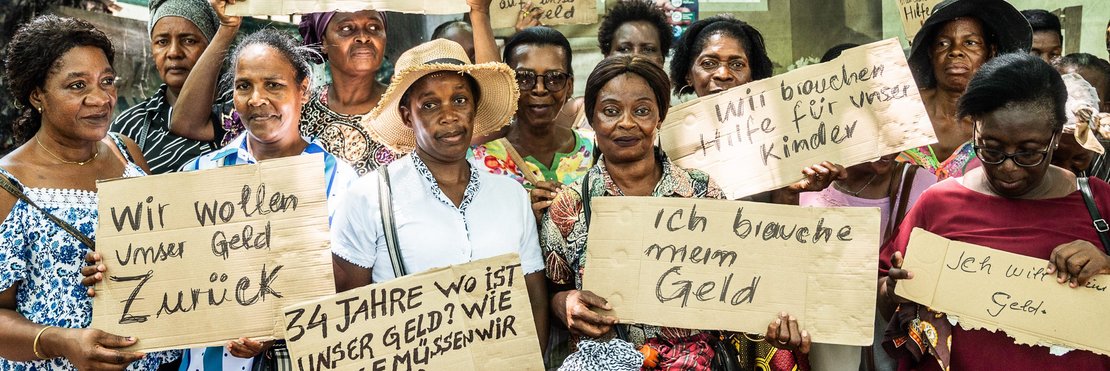 Geld
Hilfe
für
Wir brauchen
Hilfe für unser
Kinder
Wir wollen
unser Geld
Zurück
34 JAHRE WO IST
UNSER GELD? WIE
MÜSSEN WIR
Ich brauche
mein
Geld
Ich will
Geld.